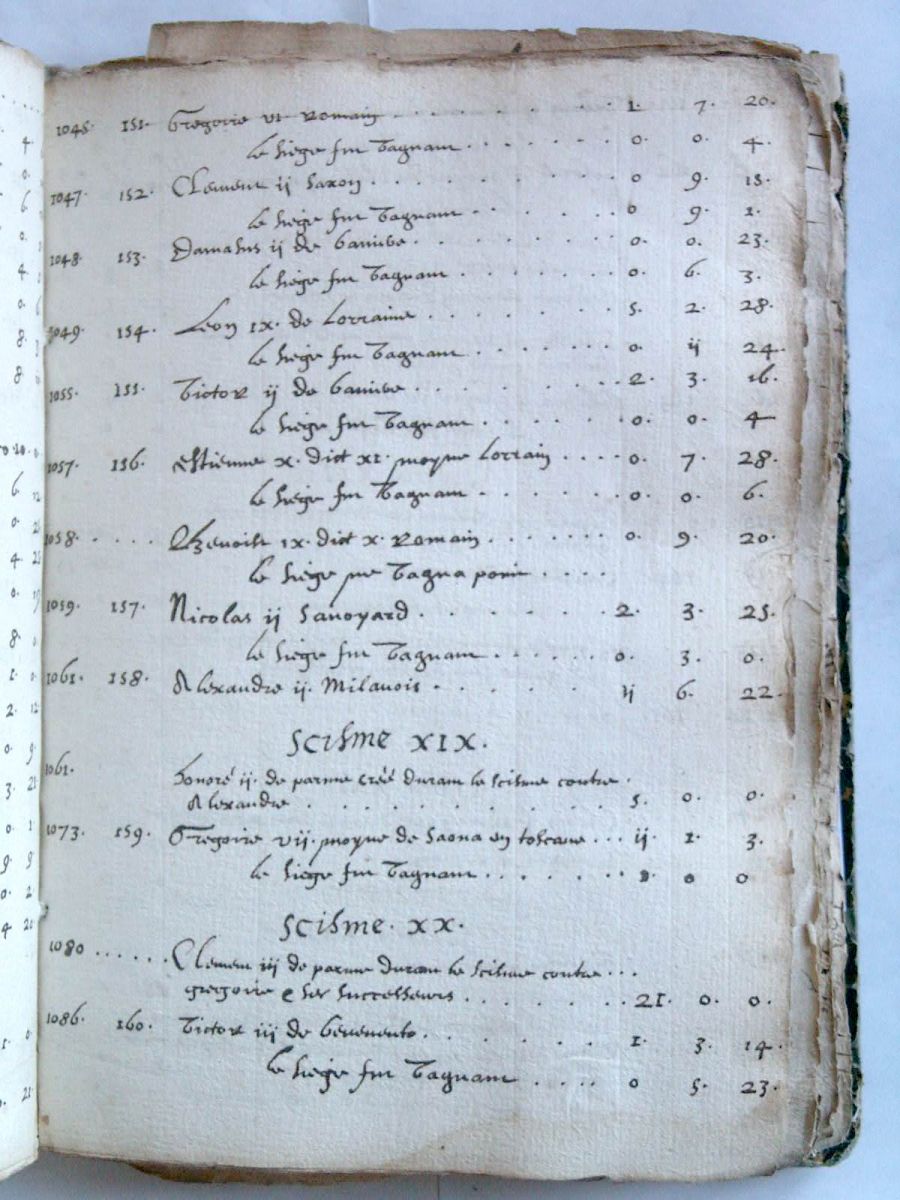 1045. 151. Gregoire vi Romain . . . . . . . . . 1. 7. 20.
le siege fut Vaquant . . . . . . . 0. 0. 4.
1047. 152. Clement ij Saxon . . . . . . . . . 0 9. 15.
le siege fut Vaquant . . . . . . 0 9. 1.
1048. 153. Damasus ij de bauiere . . . . . . . . 0. 0. 23.
le siege fut Vaquant . . . . . . 0. 6. 3.
1049. 154. Leon ix. de Lorraine . . . . . . . . 5. 2. 28.
le siege fut Vaquant . . . . . . 0. ij 24.
1055. 155. Victor ij de bauiere . . . . . . . . . 2. 3. 16.
le siege fut Vaquant . . . . . . 0. 0. 4
1057. 156. Estienne x. dict xi. moyne Lorrain . . . . 0. 7. 28.
le siege fut Vaquant . . . . . . 0. 0. 6.
1058. . . . . Benoist ix. dict x. Romain . . . . . . . 0. 9. 20.
le siege ne Vaqua point . . . .
1059. 157. Nicolas ij Sauoyard . . . . . . . 2. 3. 25.
le siege fut Vaquant . . . . . 0. 3. 0.
1061. 158. Alexandre ij. Milanois . . . . . . ij 6. 22.
Scisme XIX.
1061. honoré ij. de parme créé durant le scisme contre .
Alexandre . . . . . . . . . . . 5. 0. 0.
1073. 159. Gregoire vij. moyne de Saona en toscane . . . ij. 1. 3.
le siege fut Vaquant . . . . . . 0 0
Scisme. XX.
1080 . . . . . . Clement iij de parme durant le scisme contre . . .
gregoire e ses successeurs . . . . . . . 21. 0. 0.
1086. 160. Victor iij de beneuento . . . . . . . 1. 3. 14.
le siege fut Vaquant . . . . 0 5. 23.